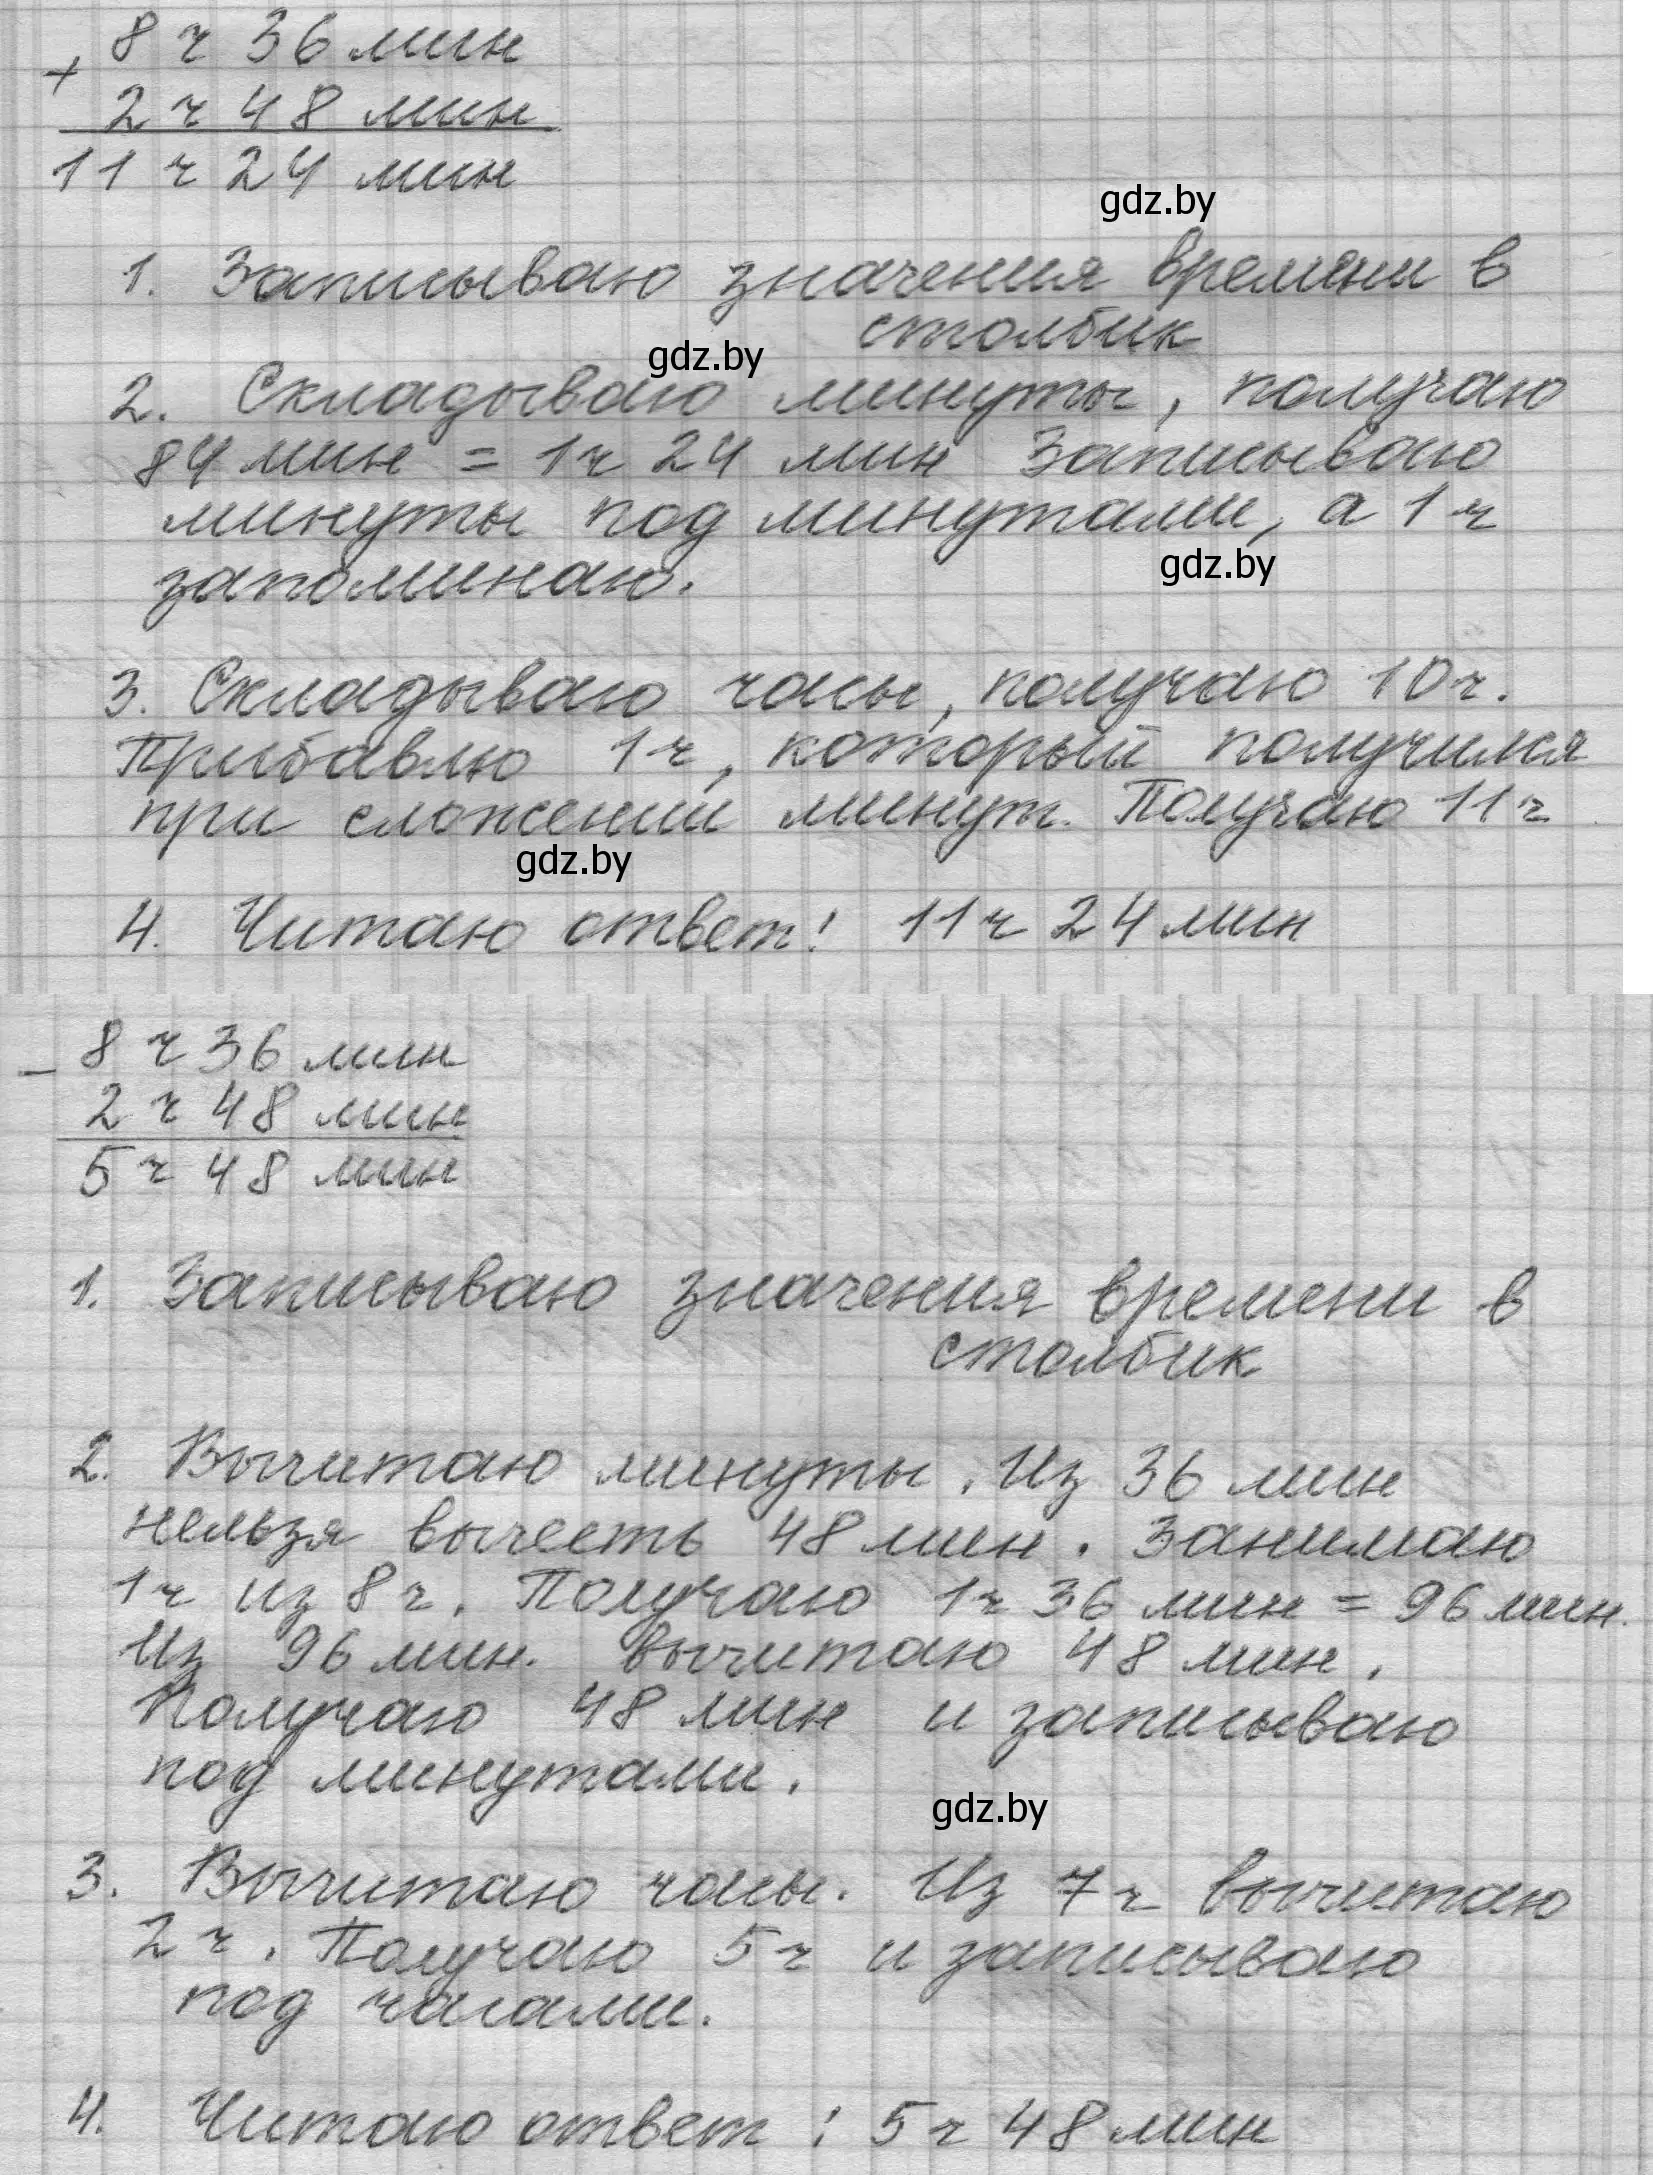 8 ч 36 мин
+
2 ч 48 мин
11 ч 24 мин
gdz.by
1. Записываю значения времени в
столбик
gdz.by
2. Складываю минуты, получаю
84 мин = 1 ч 24 мин Записываю
минуты под минутами, а 1 ч
gdz.by
запоминаю.
3. Складываю часы, получаю 10 ч.
Прибавлю 1 ч, который получился
при сложении минут. Получаю 11 ч
gdz.by
4. Читаю ответ: 11 ч 24 мин
8 ч 36 мин
−
2 ч 48 мин
5 ч 48 мин
1. Записываю значения времени в
столбик
2. Вычитаю минуты. Из 36 мин
нельзя вычесть 48 мин. Занимаю
1 ч из 8 ч. Получаю 1 ч 36 мин = 96 мин.
Из 96 мин. вычитаю 48 мин.
Получаю 48 мин и записываю
под минутами.
gdz.by
3. Вычитаю часы. Из 7 ч вычитаю
2 ч. Получаю 5 ч и записываю
под часами.
4. Читаю ответ: 5 ч 48 мин